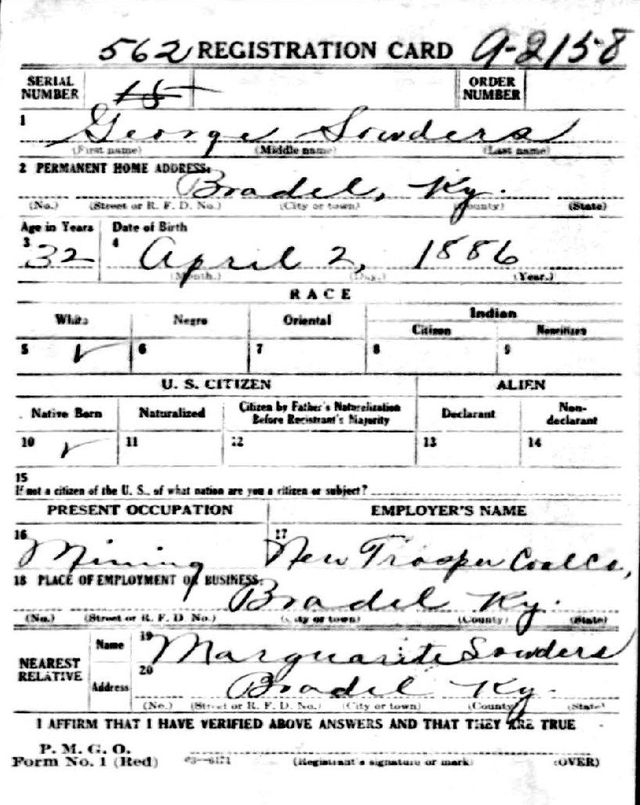 562 REGISTRATION CARD A-2158
SERIAL NUMBER 15 ORDER NUMBER
1 George Sowders
(First name) (Middle name) (Last name)
2 PERMANENT HOME ADDRESS:
Bradel, Ky.
(No.) (Street or R. F. D. No.) (City or town) (County) (State)
Age in Years Date of Birth
3 32 4 April 2, 1886
(Month.) (Day.) (Year.)
RACE
White Negro Oriental Indian
Citizen Noncitizen
5 ✓ 6 7 8 9
U. S. CITIZEN ALIEN
Native Born Naturalized Citizen by Father's Naturalization Before Registrant's Majority Declarant Non-declarant
10 ✓ 11 12 13 14
15
If not a citizen of the U. S., of what nation are you a citizen or subject?
PRESENT OCCUPATION EMPLOYER'S NAME
16 Mining 17 New Trosper Coal Co,
18 PLACE OF EMPLOYMENT OR BUSINESS:
Bradel Ky.
(No.) (Street or R. F. D. No.) (City or town) (County) (State)
NEAREST RELATIVE Name 19 Marguarite Sowders
Address 20 Bradel Ky.
(No.) (Street or R. F. D. No.) (City or town) (County) (State)
I AFFIRM THAT I HAVE VERIFIED ABOVE ANSWERS AND THAT THEY ARE TRUE
P. M. G. O.
Form No. 1 (Red) 03—6171 (Registrant's signature or mark) (OVER)